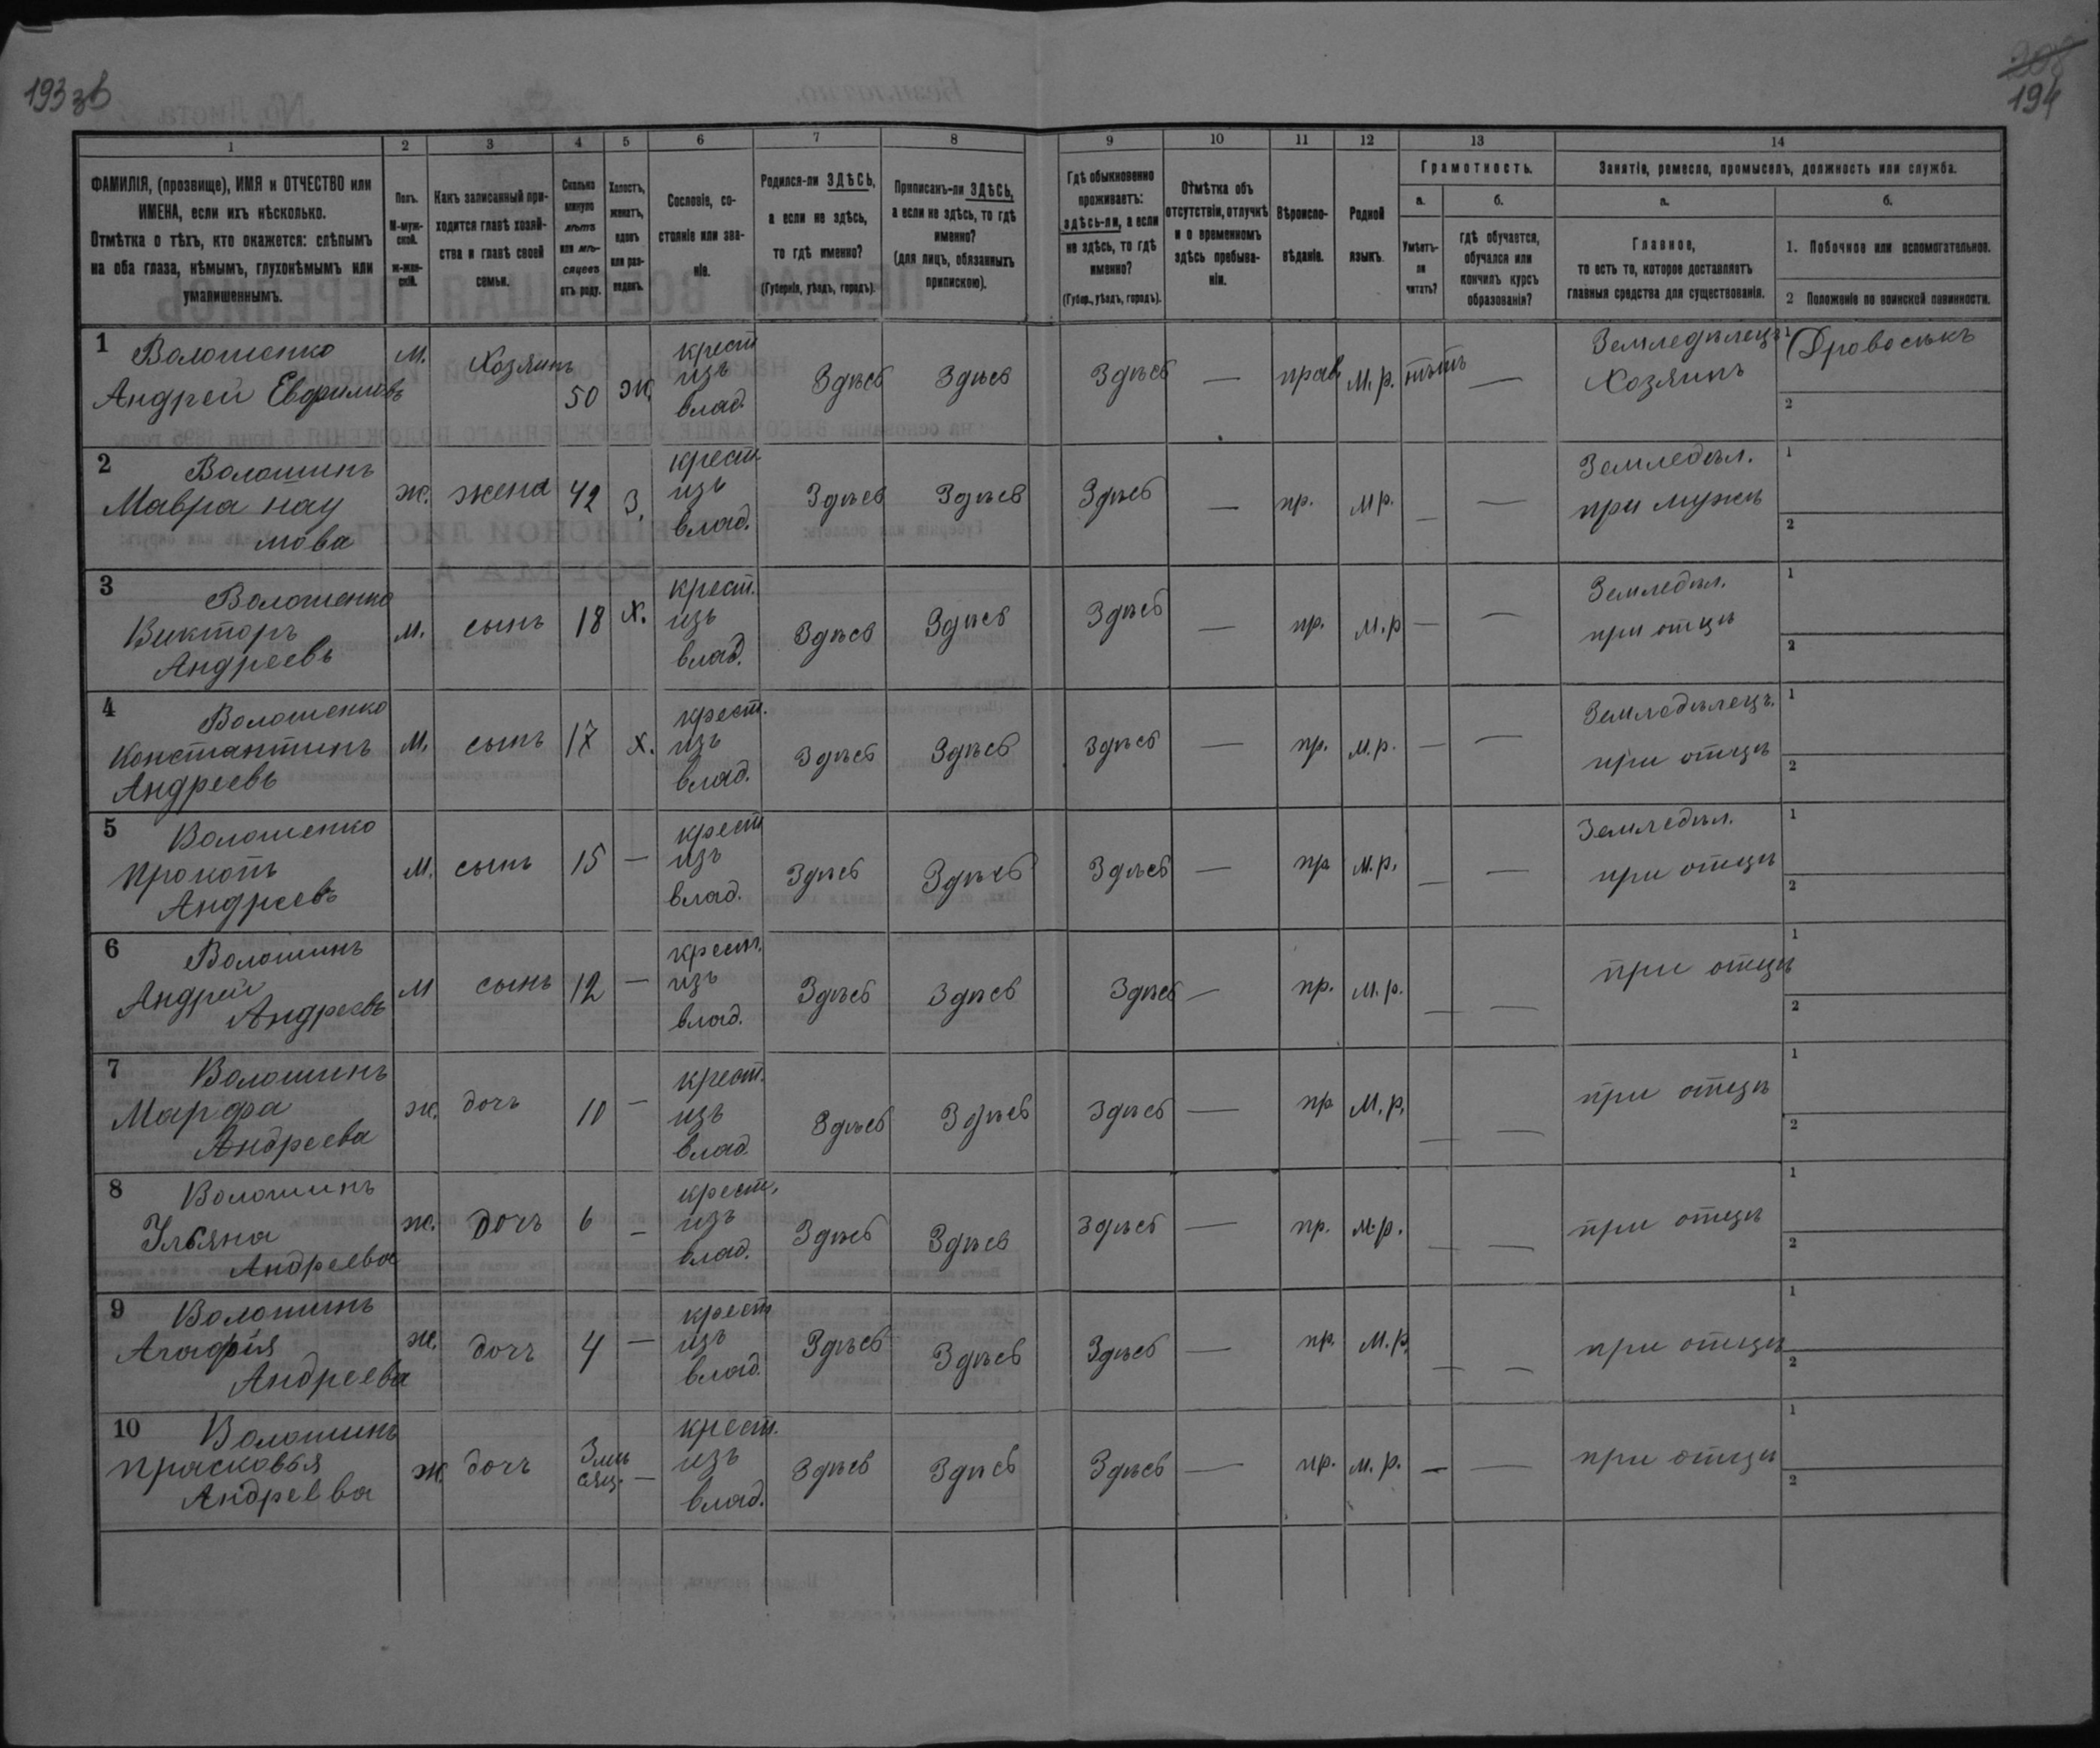 193 зв
208
194
1 2 3 4 5 6 7 8 9 10 11 12 13 14
ФАМИЛІЯ, (прозвище), ИМЯ и ОТЧЕСТВО или
ИМЕНА, если ихъ нѣсколько.
Отмѣтка о тѣхъ, кто окажется: слѣпымъ
на оба глаза, нѣмымъ, глухонѣмымъ или
умалишеннымъ.
Полъ.
М-муж-
ской.
ж-жен-
скій.
Какъ записанный при-
ходится главѣ хозяй-
ства и главѣ своей
семьи.
Сколько
минуло
лѣтъ
или мѣ-
сяцевъ
отъ роду.
Холостъ,
женатъ,
вдовъ
или раз-
веденъ.
Сословіе, со-
стояніе или зва-
ніе.
Родился-ли ЗДѢСЬ,
а если не здѣсь,
то гдѣ именно?
(Губернія, уѣздъ, городъ).
Приписанъ-ли ЗДѢСЬ,
а если не здѣсь, то гдѣ
именно?
(для лицъ, обязанныхъ
припискою).
Гдѣ обыкновенно
проживаетъ:
здѣсь-ли, а если
не здѣсь, то гдѣ
именно?
(Губер., уѣздъ, городъ).
Отмѣтка объ
отсутствіи, отлучкѣ
и о временномъ
здѣсь пребыва-
ніи.
Вѣроиспо-
вѣданіе.
Родной
языкъ.
Грамотность.
а.
Умѣетъ-
ли
читать?
б.
гдѣ обучается,
обучался или
кончилъ курсъ
образованія?
Занятіе, ремесло, промыселъ, должность или служба.
а.
Главное,
то есть то, которое доставляетъ
главныя средства для существованія.
б.
1. Побочное или вспомогательное.
2 Положеніе по воинской повинности.
1 Волошенко М. Хозяинъ 50 ж. крест Здѣсь Здѣсь Здѣсь — прав. м.р. нѣтъ — Земледѣлецъ 1 Дровосѣкъ
Андрей Евфимовъ изъ Хозяинъ
влад. 2
2 Волошинъ ж. жена 42 з. крест. Здѣсь Здѣсь Здѣсь — пр. м.р. — — Земледѣл. 1
Мавра Нау изъ при мужѣ
мова влад. 2
3 Волошенко м. сынъ 18 х. крест. Здѣсь Здѣсь Здѣсь — пр. м.р — — Земледѣл. 1
Викторъ изъ при отцѣ
Андреевъ влад. 2
4 Волошенко м. сынъ 17 х. крест. Здѣсь Здѣсь Здѣсь — пр. м.р. — — Земледѣлецъ. 1
Константинъ изъ при отцѣ
Андреевъ влад. 2
5 Волошенко м. сынъ 15 — крест Здѣсь Здѣсь Здѣсь — пр м.р. — — Земледѣл. 1
Прокопъ изъ при отцѣ
Андреевъ влад. 2
6 Волошинъ м сынъ 12 — крест. Здѣсь Здѣсь Здѣсь — пр. м.р. — — при отцѣ 1
Андрей изъ
Андреевъ влад. 2
7 Волошинъ ж. дочь 10 — крест. Здѣсь Здѣсь Здѣсь — пр м.р. — — при отцѣ 1
Марфа изъ
Андреева влад. 2
8 Волошинъ ж. дочь 6 — крест. Здѣсь Здѣсь Здѣсь — пр. м.р. — — при отцѣ 1
Ульяна изъ
Андреева влад. 2
9 Волошинъ ж. дочь 4 — крест Здѣсь Здѣсь Здѣсь — пр. м.р. — — при отцѣ 1
Агафія изъ
Андреева влад. 2
10 Волошинъ ж. дочь 3 мѣ — крест. Здѣсь Здѣсь Здѣсь — пр. м.р. — — при отцѣ 1
Прасковья сяц. изъ
Андреева влад. 2